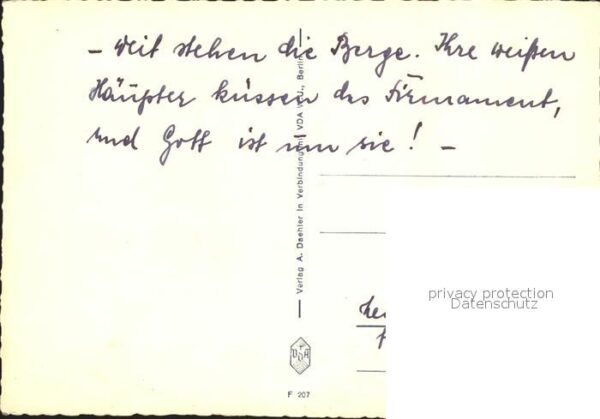 – Weit stehen die Berge. Ihre weißen
Häupter küssen das Firmament,
und Gott ist um sie! –
Verlag A. Daehler in Verbindung mit VDA Berlin
privacy protection
Datenschutz
VDA
F 207